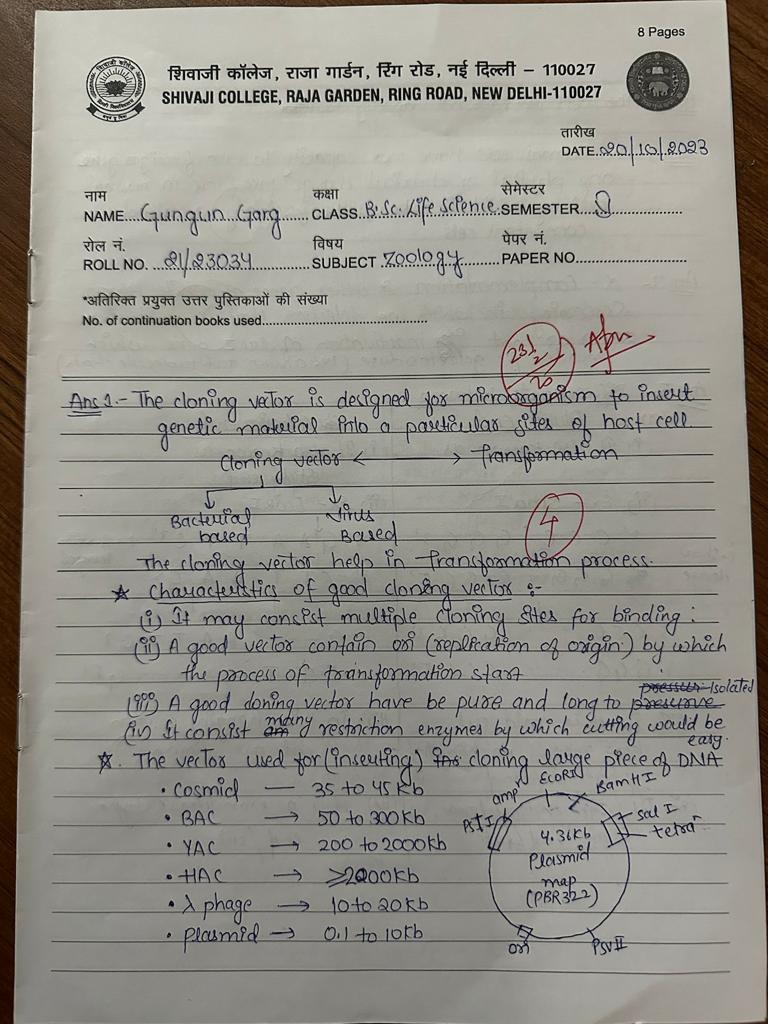 8 Pages
शिवाजी कॉलेज, राजा गार्डन, रिंग रोड, नई दिल्ली – 110027
SHIVAJI COLLEGE, RAJA GARDEN, RING ROAD, NEW DELHI-110027
तारीख
DATE 20/10/2023
नाम कक्षा सेमेस्टर
NAME Gungun Garg CLASS B.Sc. Life Science SEMESTER
रोल नं. विषय पेपर नं.
ROLL NO. 21/23034 SUBJECT Zoology PAPER NO.
*अतिरिक्त प्रयुक्त उत्तर पुस्तिकाओं की संख्या
No. of continuation books used
Ans 1.- The cloning vector is designed for microorganism to insert
genetic material into a particular sites of host cell
Cloning vector <——> Transformation
Bacterial based Virus Based
4
The cloning vector help in transformation process.
* Characteristics of good cloning vector :-
(i) It may consist multiple cloning sites for binding :
(ii) A good vector contain ori (replication of origin) by which
the process of transformation start
(iii) A good cloning vector have be pure and long to isolated
(iv) It consist many restriction enzymes by which cutting would be easy.
*. The vector used for (inserting) cloning large piece of DNA
• Cosmid — 35 to 45 Kb
• BAC → 50 to 300 Kb
• YAC → 200 to 2000 Kb
• HAC → ≥2000 Kb
• λ phage → 10 to 20 Kb
• plasmid → 0.1 to 10 Kb
PstI
ampʳ
EcoRI
BamHI
Sal I
tetraʳ
4.36kb
Plasmid
map
(PBR322)
ori
PvuII